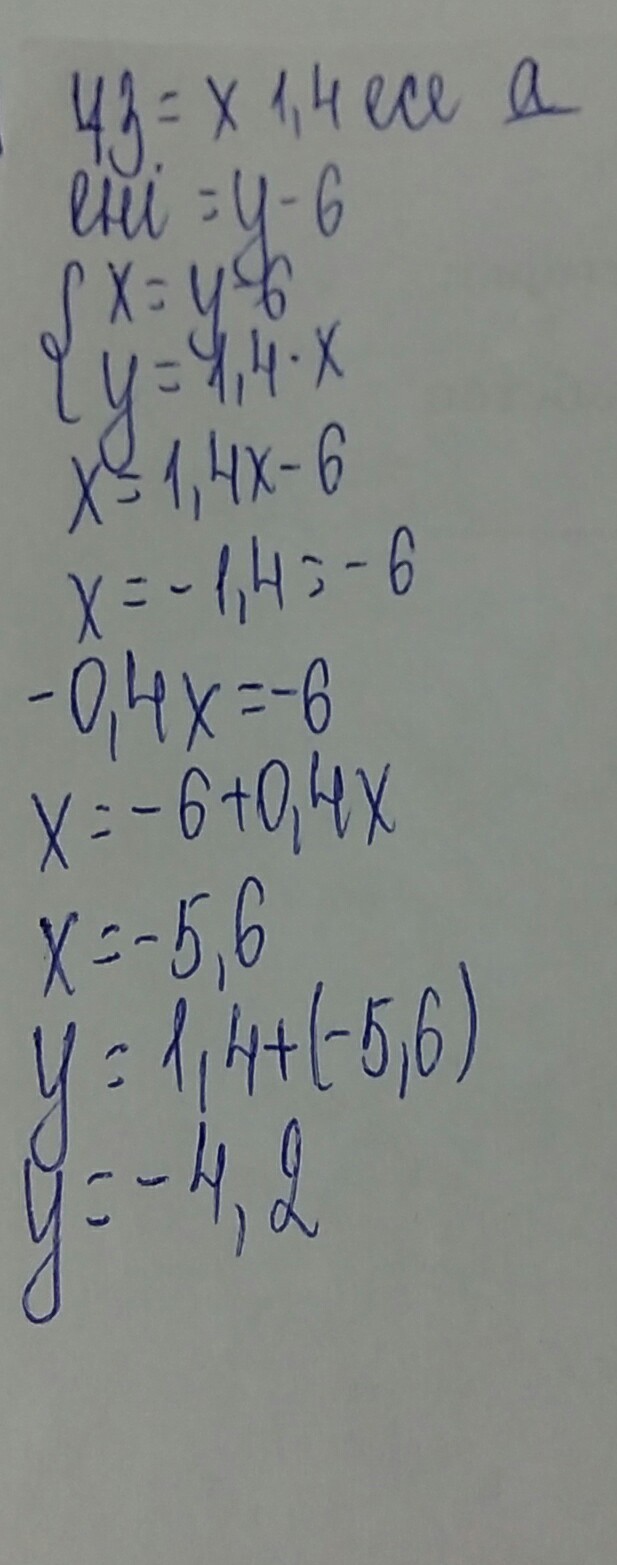 ұз = x 1,4 есе а
ені = y - 6
{ x = y - 6
y = 1,4 · x
x = 1,4x - 6
x = - 1,4 = - 6
- 0,4x = - 6
x = - 6 + 0,4x
x = - 5,6
y = 1,4 + (- 5,6)
y = - 4,2